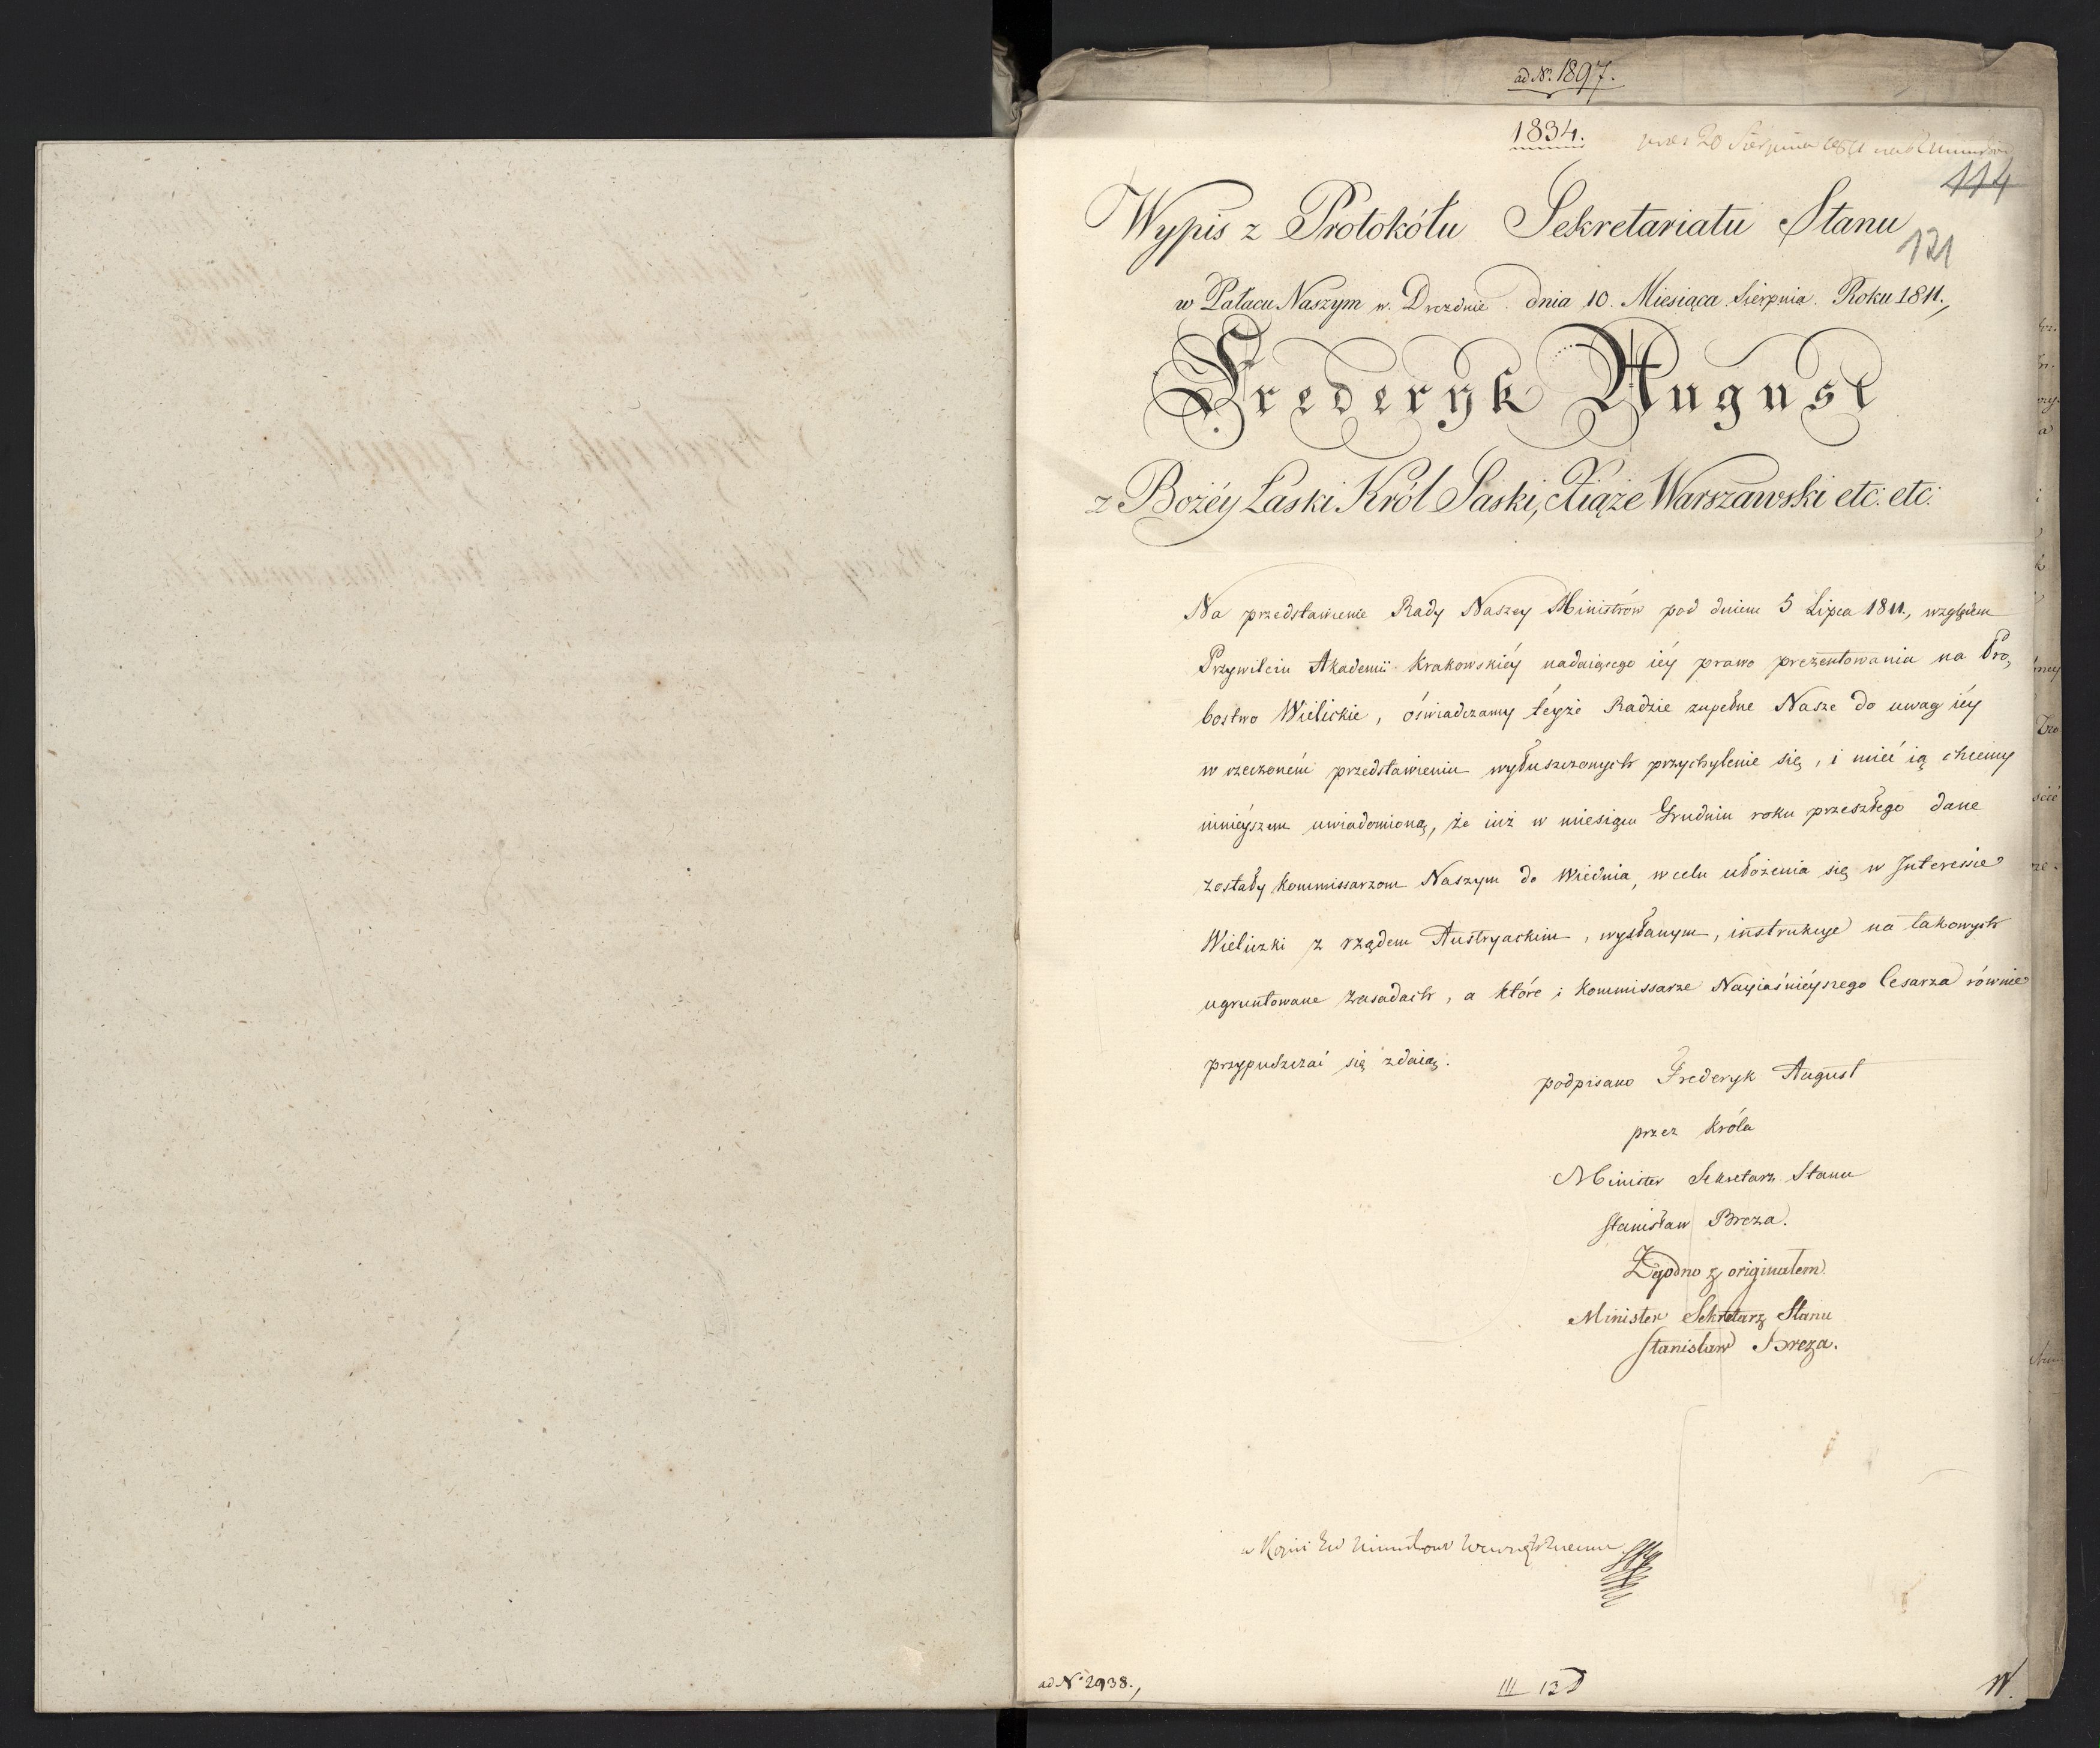 ad Nº 1897.
1834.
20 Sierpnia
114
Wypis z Protokółu Sekretariatu Stanu
121
w Pałacu Naszym w. Dreznie. dnia 10. Miesiąca Sierpnia. Roku 1811.,
Frederyk August
z Bożéy Łaski Król Saski, Xiąże Warszawski etc. etc.
Na przedstawienie Rady Naszey Ministrów pod dniem 5 Lipca 1811., względem
Przywileiu Akademii Krakowskiéy nadaiącego iéy prawo prezentowania na Pro,
bostwo Wielickie, oświadczamy téyże Radzie zupełne Nasze do uwag iéy
w rzeczoném przedstawieniu wyłuszczonych przychylenie się, i mieć ią chcemy
ninieyszem uwiadomioną, że iuż w miesiącu Grudniu roku przeszłego dane
zostały Kommissarzom Naszym do Wiednia, w celu ułożenia się w Interessie
Wieliczki z rządem Austryackim, wysłanym, instrukcye na takowych
ugruntowane zasadach, a które i Kommissarze Nayiaśnieyszego Cesarza równie
przypuszczać się zdaią.
podpisano Frederyk August
przez Króla
Minister Sekretarz Stanu
Stanisław Breza.
Zgodno z originałem
Minister Sekretarz Stanu
Stanisław Breza.
ad Nº 2938.,
III 13